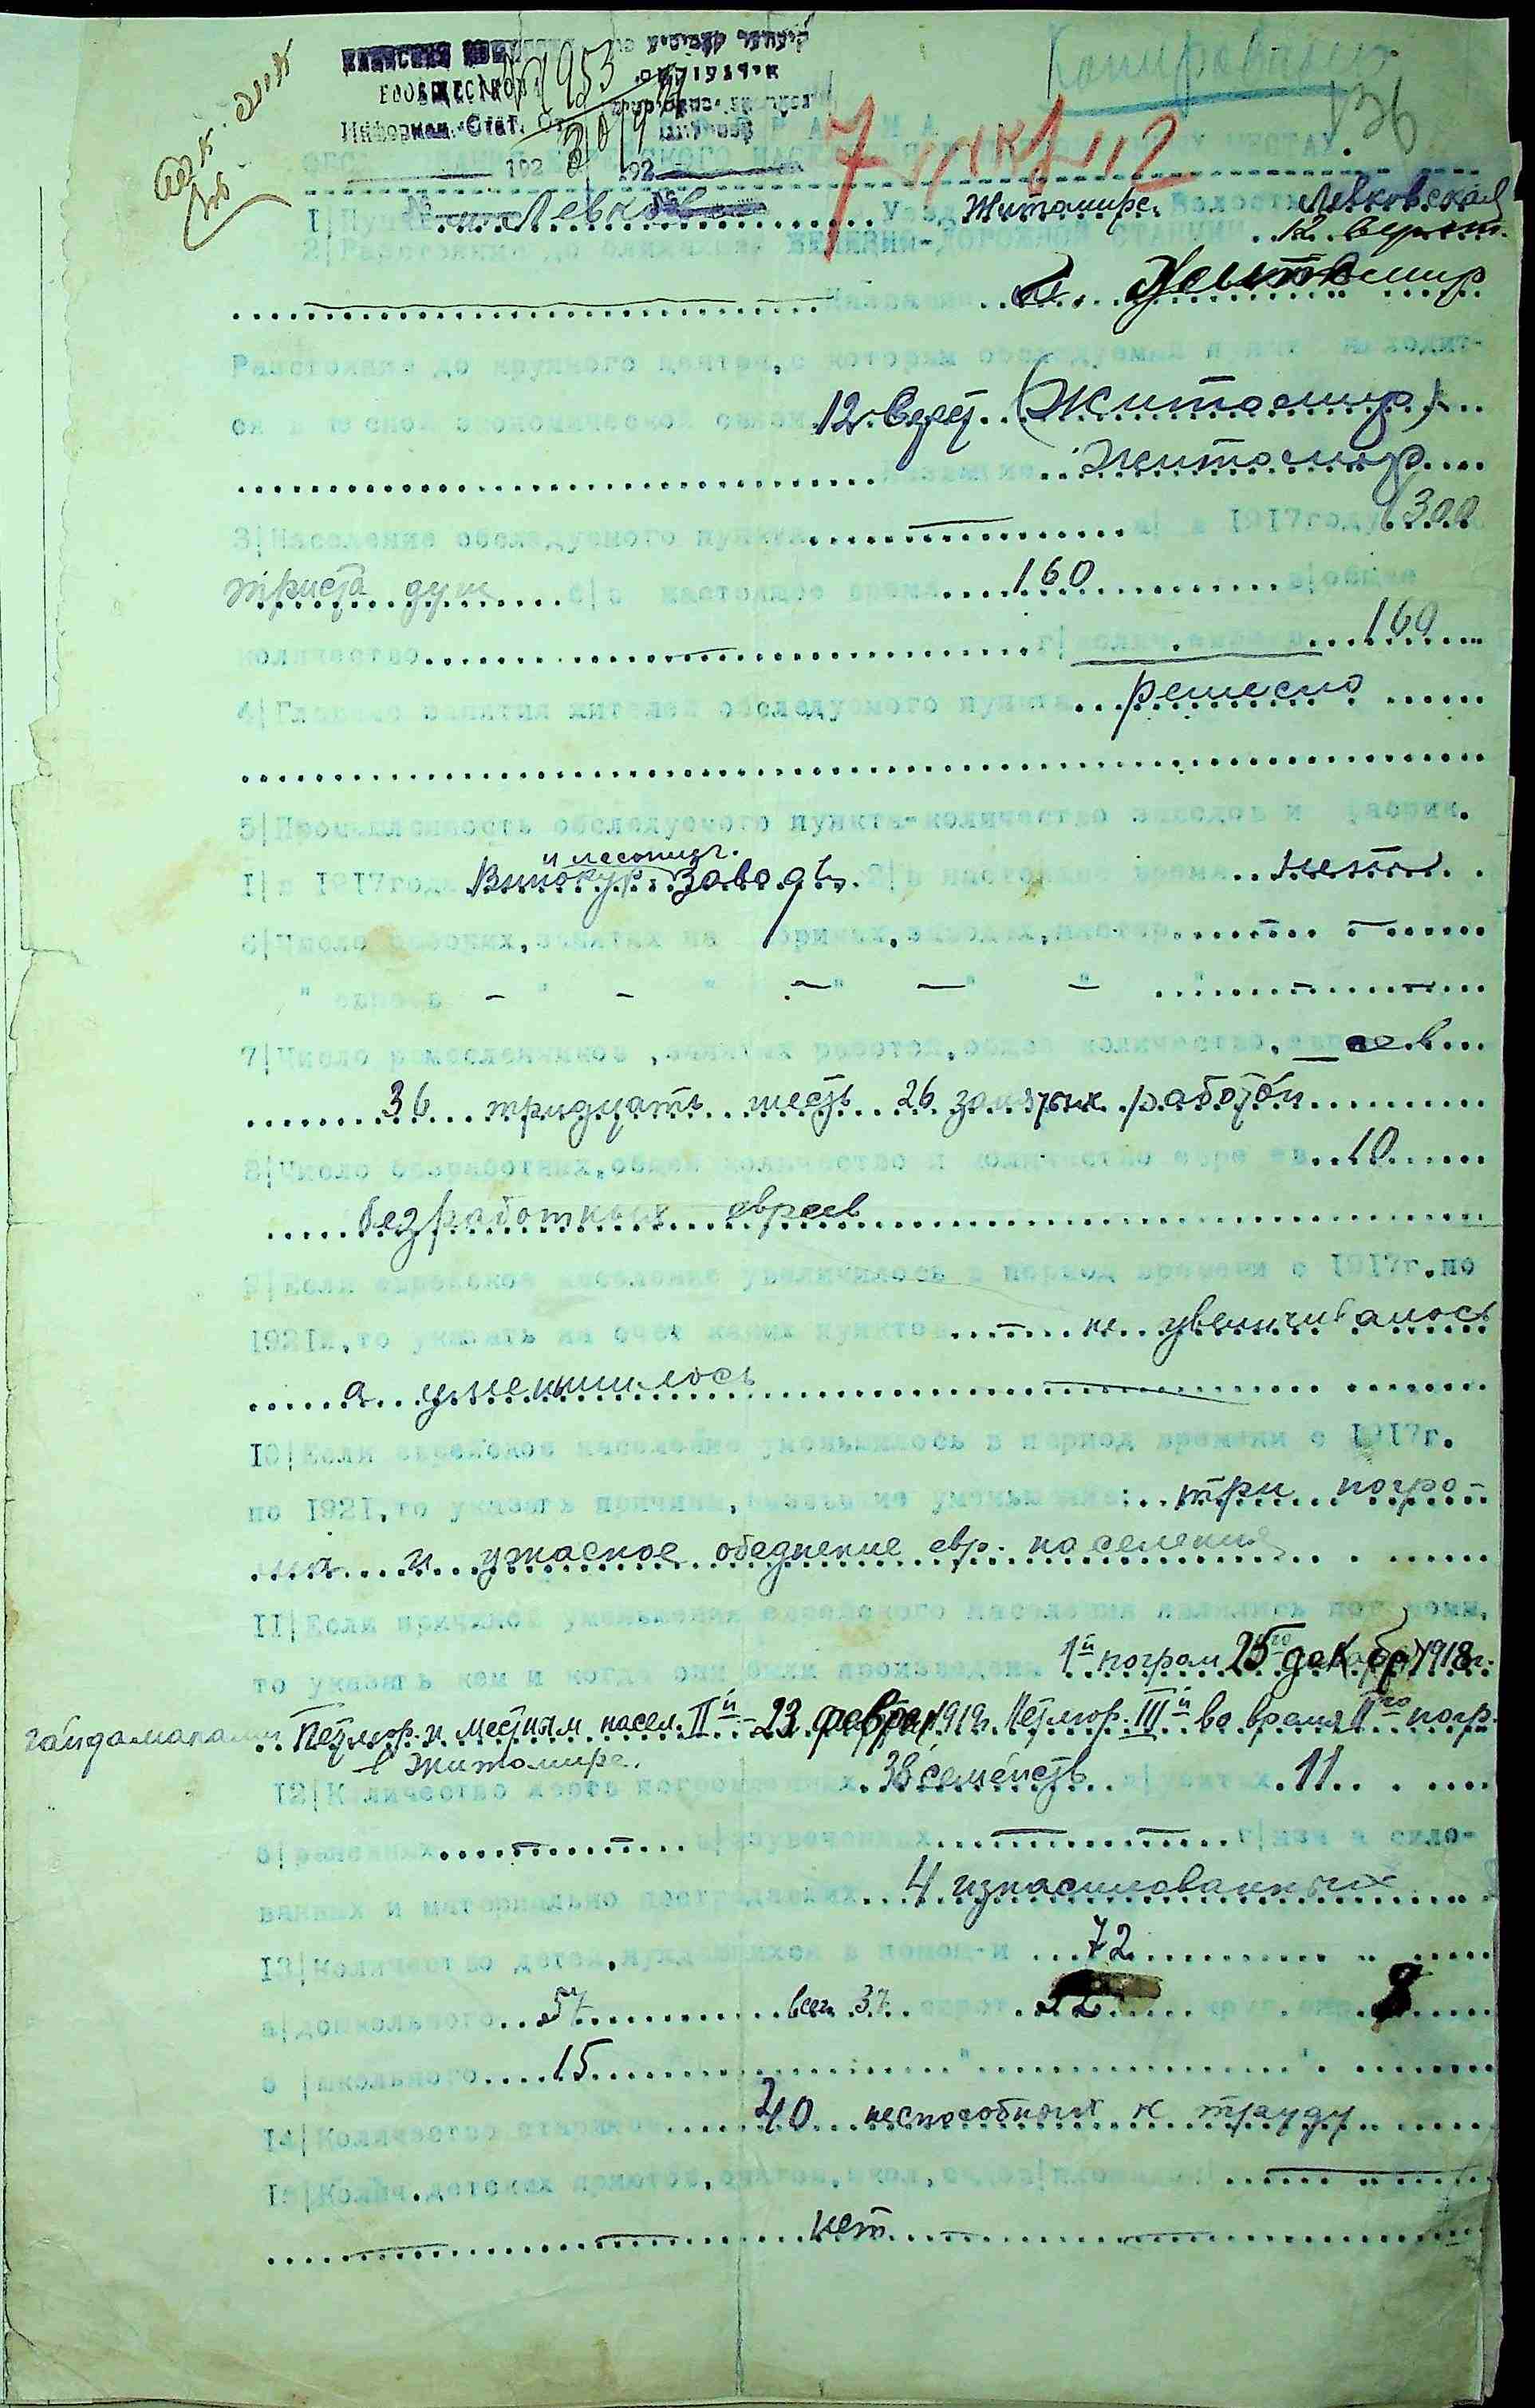 Копировано
36
ЕВОБЩЕСТКОМ
№ 1953
Информ. Стат. От
30/9
192 192
7 укр 12
ОБСЛЕДОВАНИЯ ЕВРЕЙСКОГО НАСЕЛЕНИЯ МЕСТАХ.
I|Пункт м. Левков Уезд Житомирс. Волость Левковская
2|Расстояние до ближайшей ЖЕЛЕЗНО-ДОРОЖНОЙ СТАНЦИИ. 12 верст.
Название Житомир
Расстояние до крупного центра, с которым обследуемый пункт находит-
ся в тесной экономической связи 12 верст (Житомир)
Название Житомир
3|Население обследуемого пункта а| в 1917году (300
триста душ б|в настоящее время 160 в|общее
количество г|колич. евреев 160
4|Главное занятия жителей обследуемого пункта ремесло
5|Промышленность обследуемого пункта-количество заводов и фабрик.
и лесопил.
I|в 1917году Винокур. заводъ. 2|в настоящее время нетъ
6|Число рабочих, занятых на фабриках, заводах, мастер.
" евреев - " - " - " - " - "
7|Число ремесленников, занятых работой, общее количество, евреев
36 тридцать шесть 26 занятых работой
8|Число безработных, общее количество и количество евреев 10
безработных евреев
9|Если еврейское население увеличилось в период времени с 1917г. по
1921г, то указать на счет каких пунктов не увеличивалось
а уменьшилось
10|Если еврейское население уменьшилось в период времени с 1917г.
по 1921, то указать причины, вызвавшие уменьшение: три погро-
ма и ужасное обеднение евр. населения
II|Если причиной уменьшения еврейского населения являлись погромы,
то указать кем и когда они были произведены 1й погром 25го декабр 1918г.
гайдамаками Петлюр. и местным насел. IIй - 23 феврал 1919г. Петлюр. IIIй во время IIго погр.
в Житомире.
12|Количество жертв погромленных 38 семейств а|убитых 11
б|раненных в|изувеченных г|изнасило-
ванных и материально пострадавших 4 изнасилованных
13|Количество детей, нуждающихся в помощи 72
а|дошкольного 57 всего 37 сирот круг. сир. 8
б|школьного 15 " "
14|Количество стариков 20 неспособных к труду
15|Колич. детских приютов, очагов, школ, садов|площадок|
нет